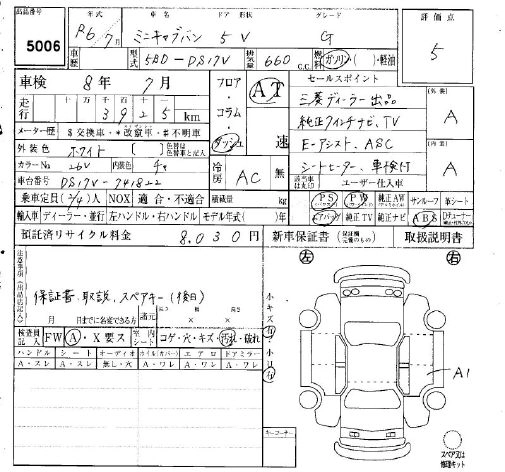 出品番号 年式 車名 ドア 形状 グレード 評価点
5006 R6/7月 ミニキャブバン 5 V G 5
車歴 型式 5BD-DS17V 排気量 660 C.C. 燃料 ガソリン( )・軽油
車検 8年 7月 フロア・コラム・ダッシュ AT 速 セールスポイント (外装) A
走行 十 万 千 百 十 一
3925 km 三菱ディーラー出品
メーター歴 $交換車・*改竄車・#不明車 純正7インチナビ、TV (内装) A
外装色 ホワイト E-アシスト、ASC
カラーNo. 26V 内装色 冷房 AC 無 シートヒーター、車検付
車台番号 DS17V-741822 ユーザー仕入車
乗車定員(2/4)人 NOX 適合・不適合 積載量 kg PS PW 純正AW サンルーフ 革シート
輸入車 ディーラー・並行 左ハンドル・右ハンドル モデル年式( )年 エアバッグ 純正TV 純正ナビ ABS
預託済リサイクル料金 8,030円 新車保証書 取扱説明書
左 右
保証書、取説、スペアキー(後日)
月 日までに名変できる方 諸元
検査員記入 FW A・X要ス 室内 シート コゲ・穴・キズ・汚れ・破れ
ハンドル シート オーディオ ホイル(カバー) エアロ ドアミラー
A・スレ A・スレ 無し・穴 A・ワレ A・ワレ A・ワレ
小キズ有
小凹有
A1
キーコーナー
スペア又は
修理キット